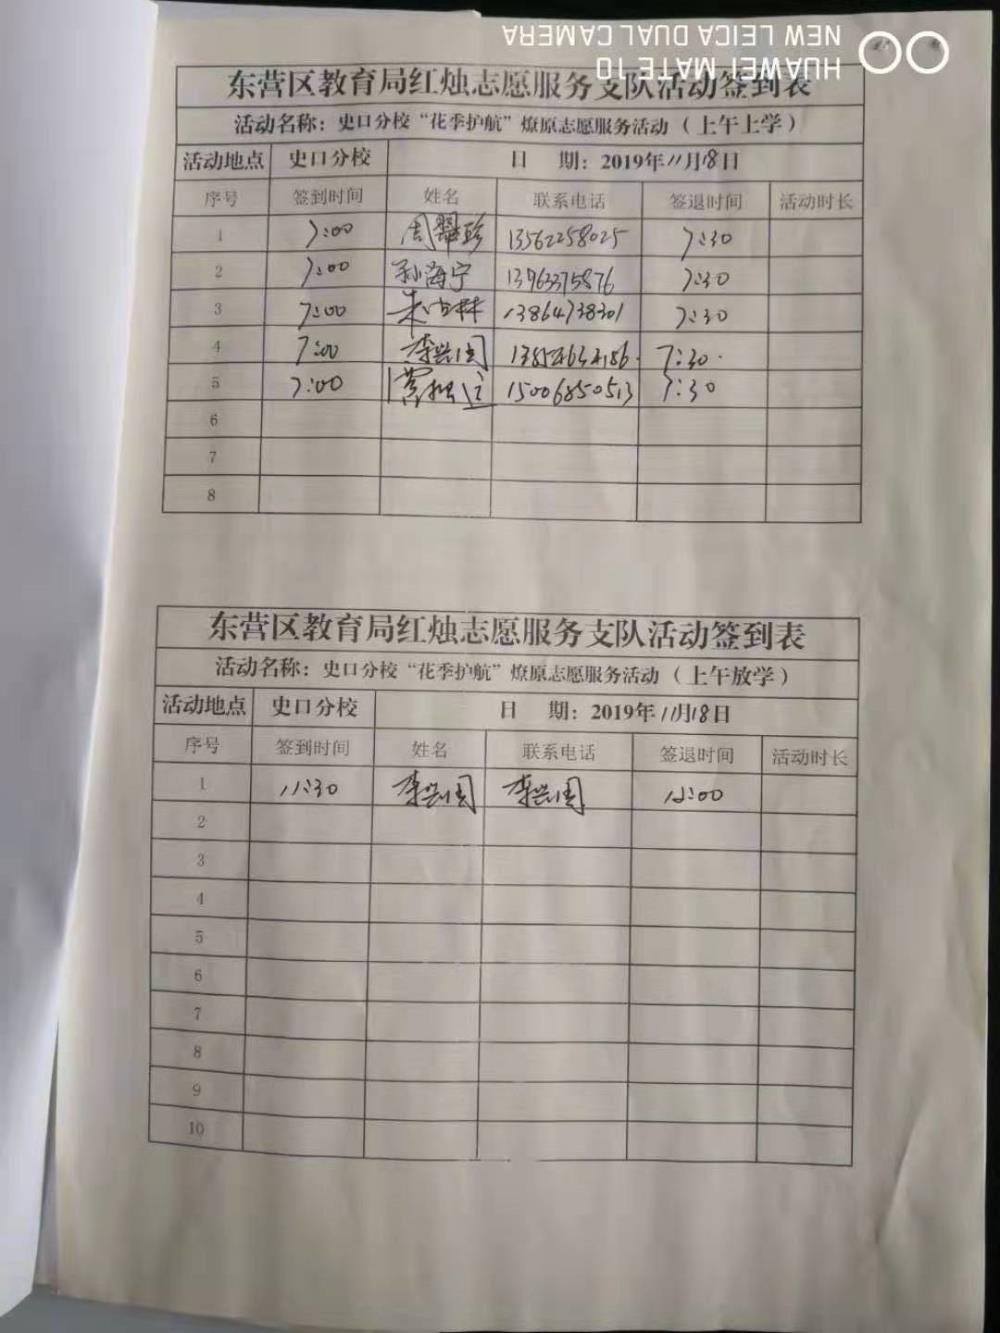 HUAWEI MATE 10
NEW LEICA DUAL CAMERA
东营区教育局红烛志愿服务支队活动签到表
活动名称：史口分校“花季护航”燎原志愿服务活动（上午上学）
活动地点 史口分校 日 期：2019年11月18日
序号 签到时间 姓名 联系电话 签退时间 活动时长
1 7:00 周翠珍 13562258025 7:30
2 7:00 孙海宁 13963375876 7:30
3 7:00 13864738301 7:30
4 7:00 李兴国 7:30
5 7:00 15006850513 7:30
6
7
8
东营区教育局红烛志愿服务支队活动签到表
活动名称：史口分校“花季护航”燎原志愿服务活动（上午放学）
活动地点 史口分校 日 期：2019年11月18日
序号 签到时间 姓名 联系电话 签退时间 活动时长
1 11:30 李兴国 李兴国 12:00
2
3
4
5
6
7
8
9
10